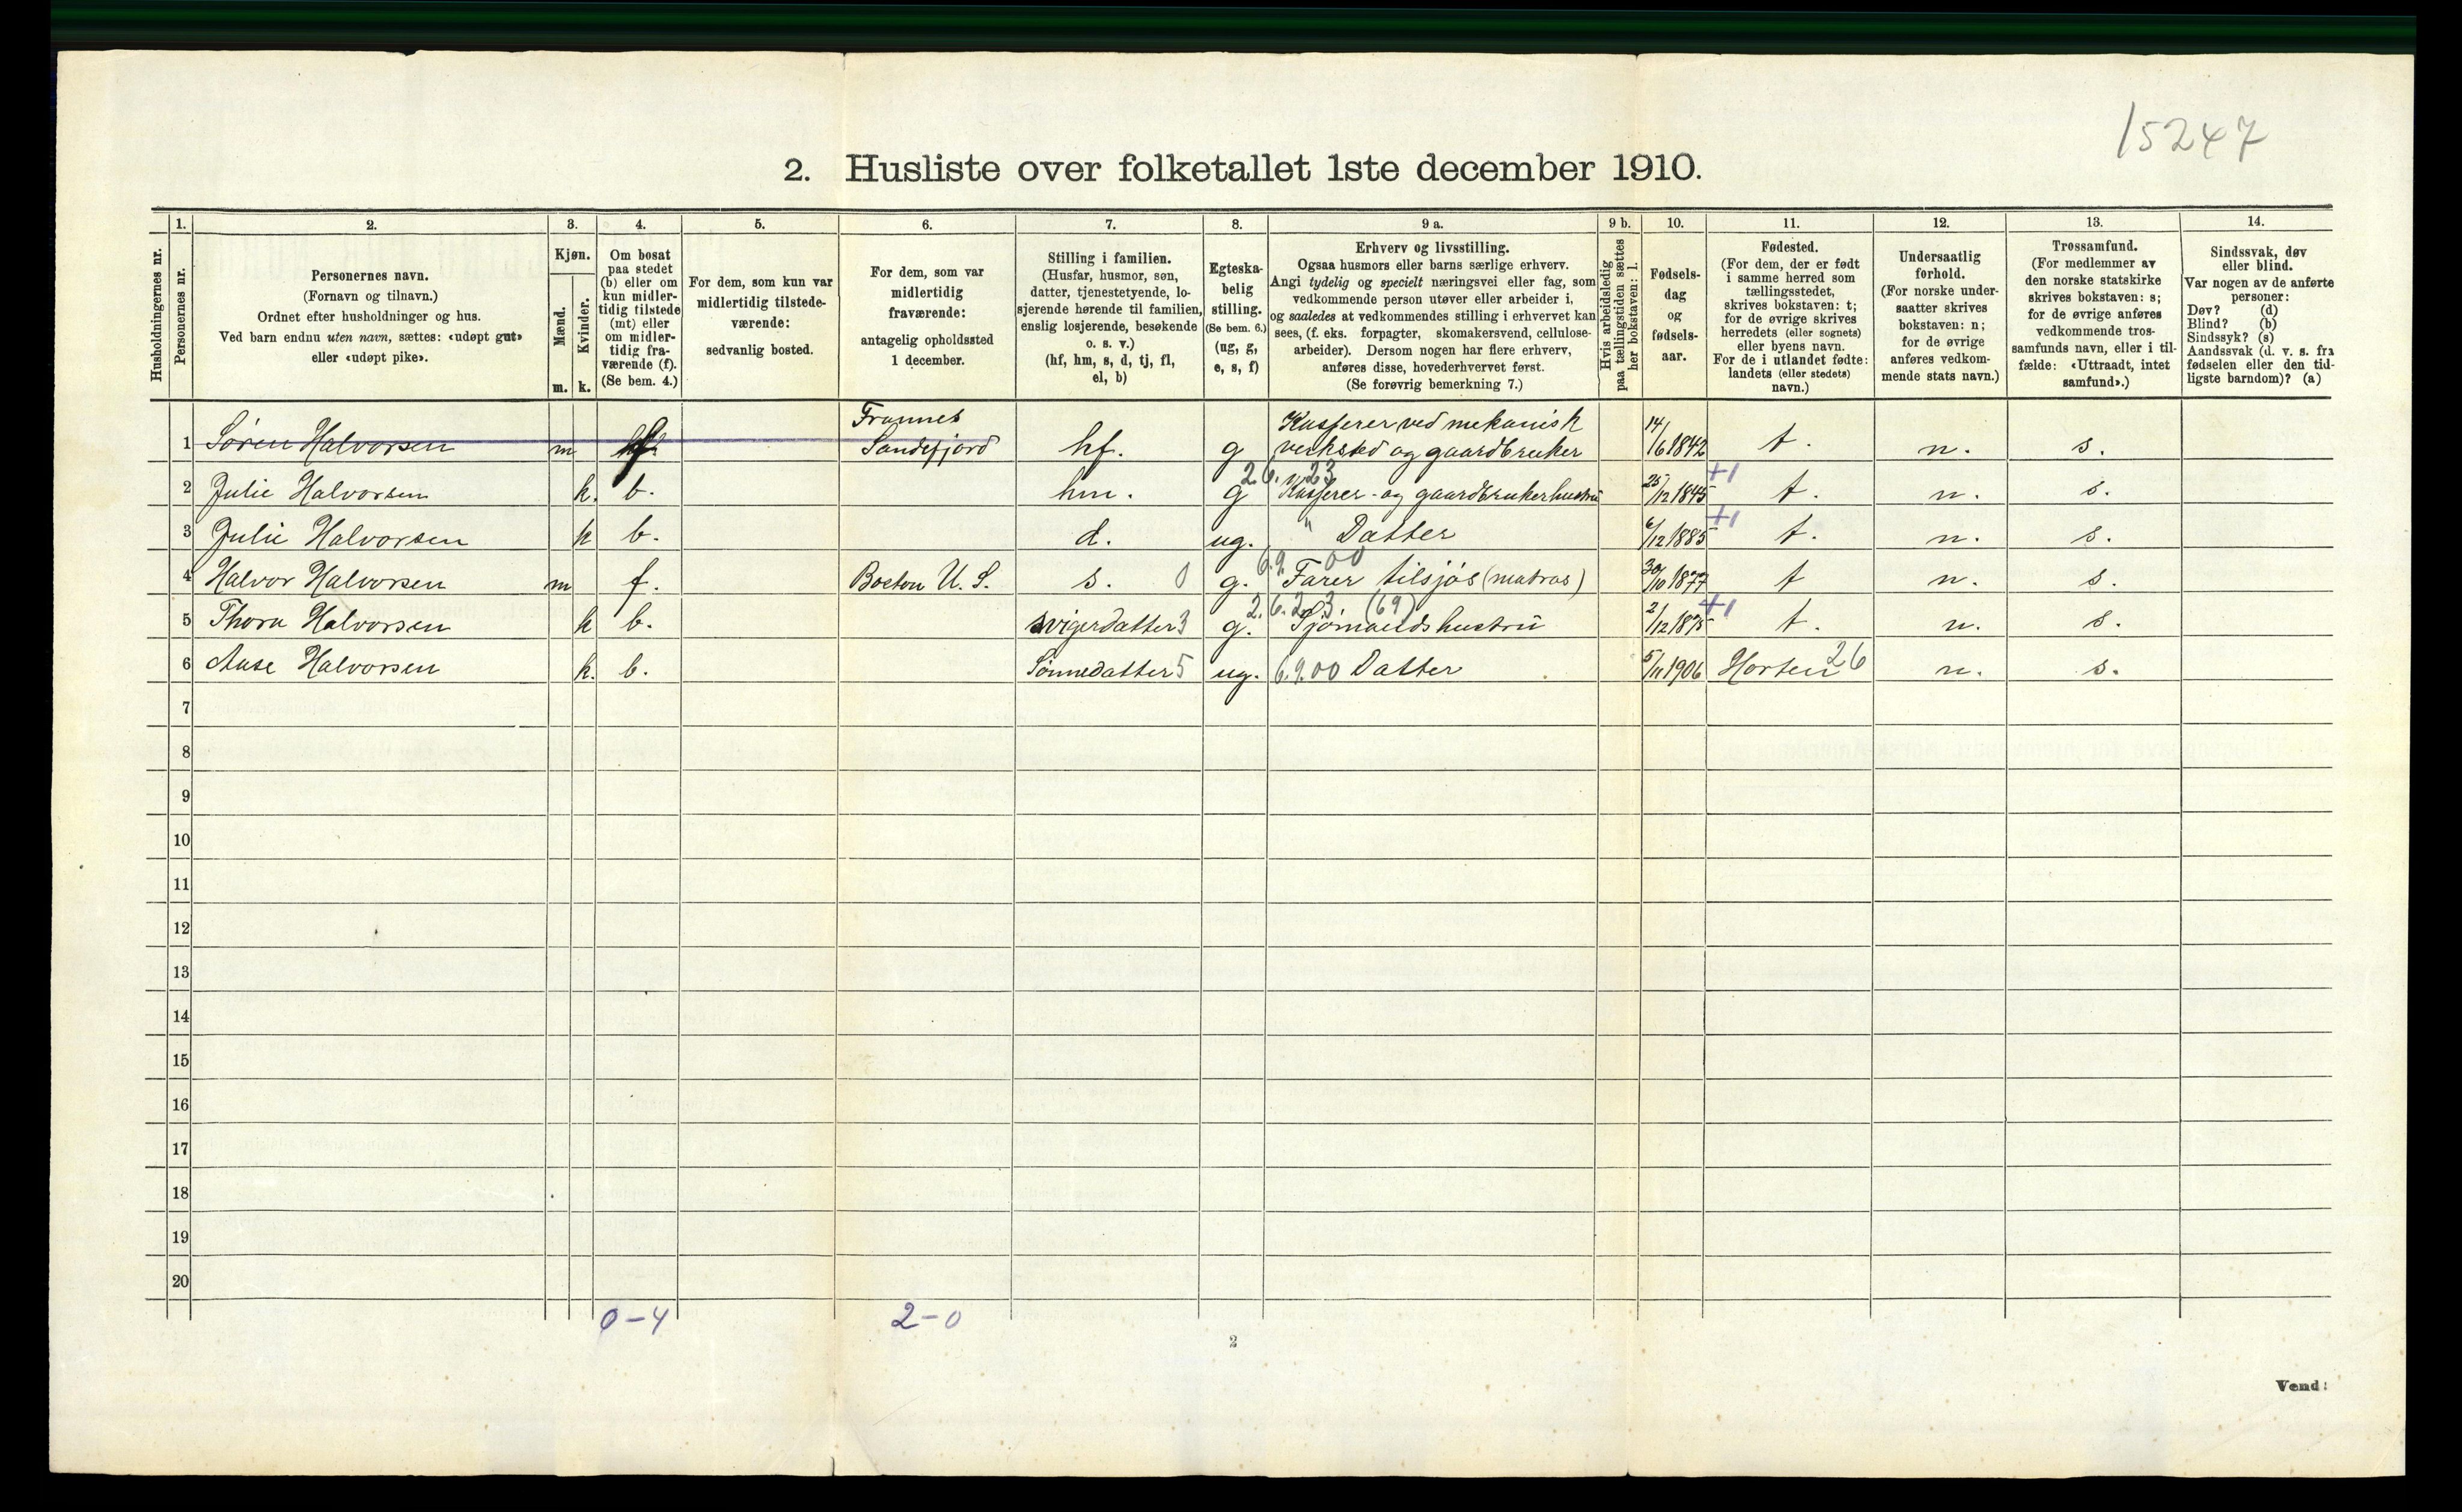 15247
2. Husliste over folketallet 1ste december 1910.
Husholdningernes nr.
1.
Personernes nr.
2.
Personernes navn.
(Fornavn og tilnavn.)
Ordnet efter husholdninger og hus.
Ved barn endnu uten navn, sættes: «udøpt gut»
eller «udøpt pike».
3.
Kjøn.
Mænd.
Kvinder.
m. k.
4.
Om bosat
paa stedet
(b) eller om
kun midler-
tidig tilstede
(mt) eller
om midler-
tidig fra-
værende (f).
(Se bem. 4.)
5.
For dem, som kun var
midlertidig tilstede-
værende:
sedvanlig bosted.
6.
For dem, som var
midlertidig
fraværende:
antagelig opholdssted
1 december.
7.
Stilling i familien.
(Husfar, husmor, søn,
datter, tjenestetyende, lo-
sjerende hørende til familien,
enslig losjerende, besøkende
o. s. v.)
(hf, hm, s, d, tj, fl,
el, b)
8.
Egteska-
belig
stilling.
(Se bem. 6.)
(ug, g,
e, s, f)
9 a.
Erhverv og livsstilling.
Ogsaa husmors eller barns særlige erhverv.
Angi tydelig og specielt næringsvei eller fag, som
vedkommende person utøver eller arbeider i,
og saaledes at vedkommendes stilling i erhvervet kan
sees, (f. eks. forpagter, skomakersvend, cellulose-
arbeider). Dersom nogen har flere erhverv,
anføres disse, hovederhvervet først.
(Se forøvrig bemerkning 7.)
9 b.
Hvis arbeidsledig
paa tællingstiden sættes
her bokstaven: l.
10.
Fødsels-
dag
og
fødsels-
aar.
11.
Fødested.
(For dem, der er født
i samme herred som
tællingsstedet,
skrives bokstaven: t;
for de øvrige skrives
herredets (eller sognets)
eller byens navn.
For de i utlandet fødte:
landets (eller stedets)
navn.)
12.
Undersaatlig
forhold.
(For norske under-
saatter skrives
bokstaven: n;
for de øvrige
anføres vedkom-
mende stats navn.)
13.
Trossamfund.
(For medlemmer av
den norske statskirke
skrives bokstaven: s;
for de øvrige anføres
vedkommende tros-
samfunds navn, eller i til-
fælde: «Uttraadt, intet
samfund».)
14.
Sindssvak, døv
eller blind.
Var nogen av de anførte
personer:
Døv? (d)
Blind? (b)
Sindssyk? (s)
Aandssvak (d. v. s. fra
fødselen eller den tid-
ligste barndom)? (a)
Framnes Kasserer ved mekanisk
1 Søren Halvorsen m f. Sandefjord hf. g verksted og gaardbruker 14/6 1842 t. n. s.
2.6.23 +1
2 Julie Halvorsen k. b. hm. g Kasserer- og gaardbrukerhustru 25/12 1845 t. n. s.
+1
3 Julie Halvorsen k b. d. ug. " Datter 6/12 1885 t. n. s.
6.9.00
4 Halvor Halvorsen m f. Boston U. S. s. 0 g. Farer tilsjøs (matros) 30/10 1877 t n. s.
2.6.23. (69) +1
5 Thora Halvorsen k b. svigerdatter 3 g. Sjömandshustru 2/12 1875 t. n. s.
6 Aase Halvorsen k. b. Sönnedatter 5 ug. 6.9.00 Datter 5/11 1906 Horten 26 n. s.
7
8
9
10
11
12
13
14
15
16
17
18
19
20
0-4 2-0
2
Vend!